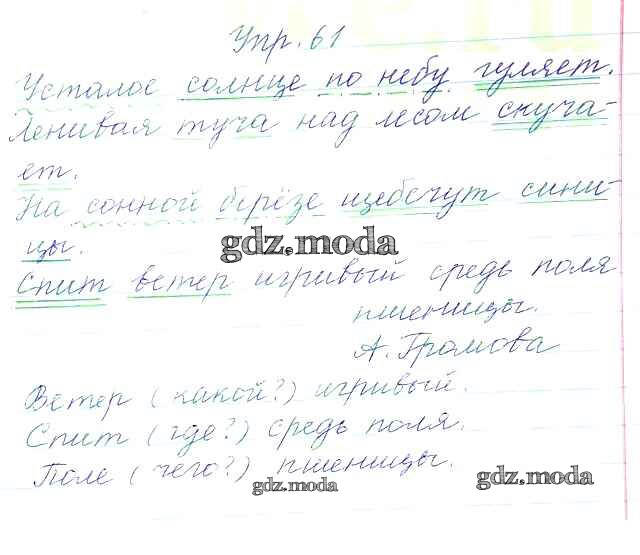 Упр. 61
Усталое солнце по небу гуляет.
Ленивая туча над лесом скуча-
ет.
На сонной берёзе щебечут сини-
цы.
gdz.moda
Спит ветер игривый средь поля
пшеницы.
А. Громова
Ветер (какой?) игривый.
Спит (где?) средь поля.
Поле (чего?) пшеницы.
gdz.moda
gdz.moda